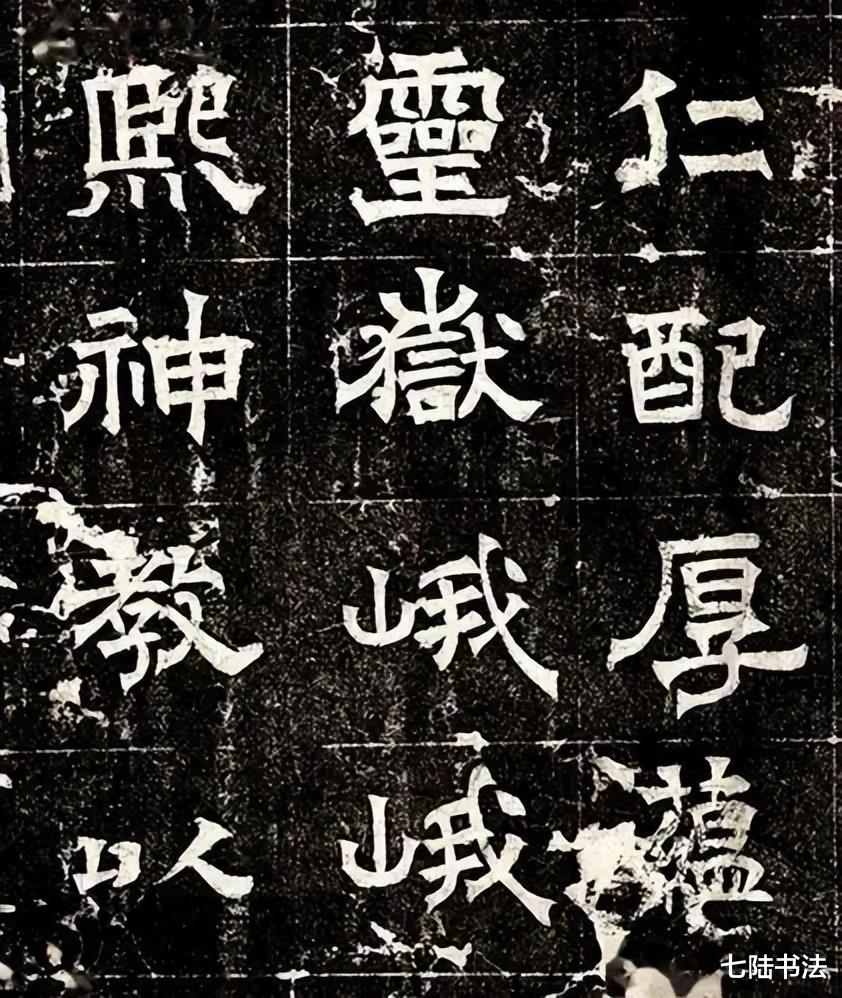 仁配厚蘊
靈嶽峨峨
熙神教以
七陆书法